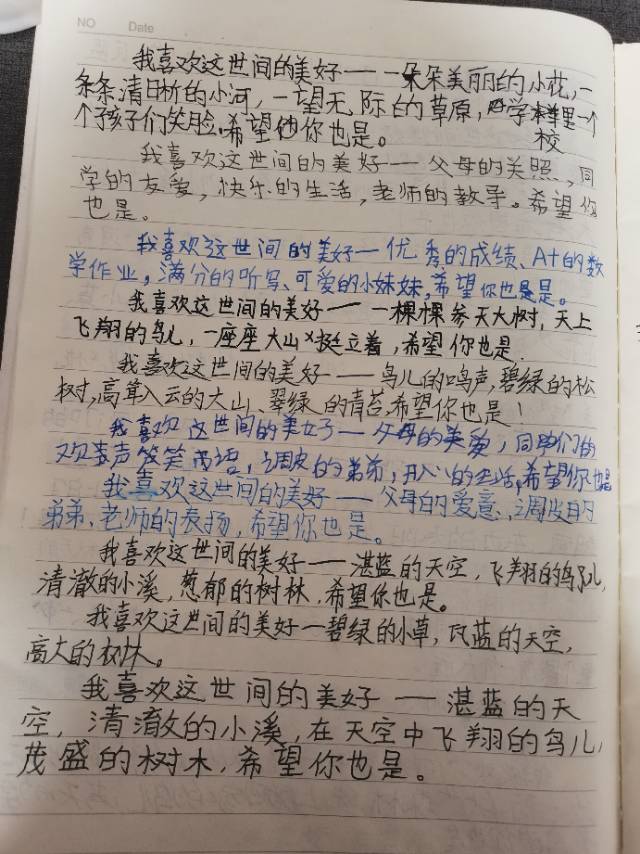 NO Date
我喜欢这世间的美好——一朵朵美丽的小花,一
条条清晰的小河,一望无际的草原,学里一个
校
个孩子们笑脸.希望你也是。
我喜欢这世间的美好——父母的关照,同
学的友爱,快乐的生活,老师的教导。希望你
也是。
我喜欢这世间的美好—优秀的成绩、A+的数
学作业,满分的听写、可爱的小妹妹,希望你也是。
我喜欢这世间的美好——一棵棵参天大树,天上
飞翔的鸟儿,一座座大山挺立着,希望你也是.
我喜欢这世间的美好——鸟儿的鸣声,碧绿的松
树,高耸入云的大山、翠绿的青苔,希望你也是!
我喜欢这世间的美好—父母的关爱,同学们的
欢声笑语,调皮的弟弟,开心的生活,希望你也是
我喜欢这世间的美好——父母的爱意,调皮的
弟弟、老师的表扬,希望你也是。
我喜欢这世间的美好——湛蓝的天空,飞翔的鸟儿,
清澈的小溪,葱郁的树林,希望你也是。
我喜欢这世间的美好—碧绿的小草,瓦蓝的天空,
高大的树林。
我喜欢这世间的美好——湛蓝的天
空,清澈的小溪,在天空中飞翔的鸟儿,
茂盛的树木,希望你也是。